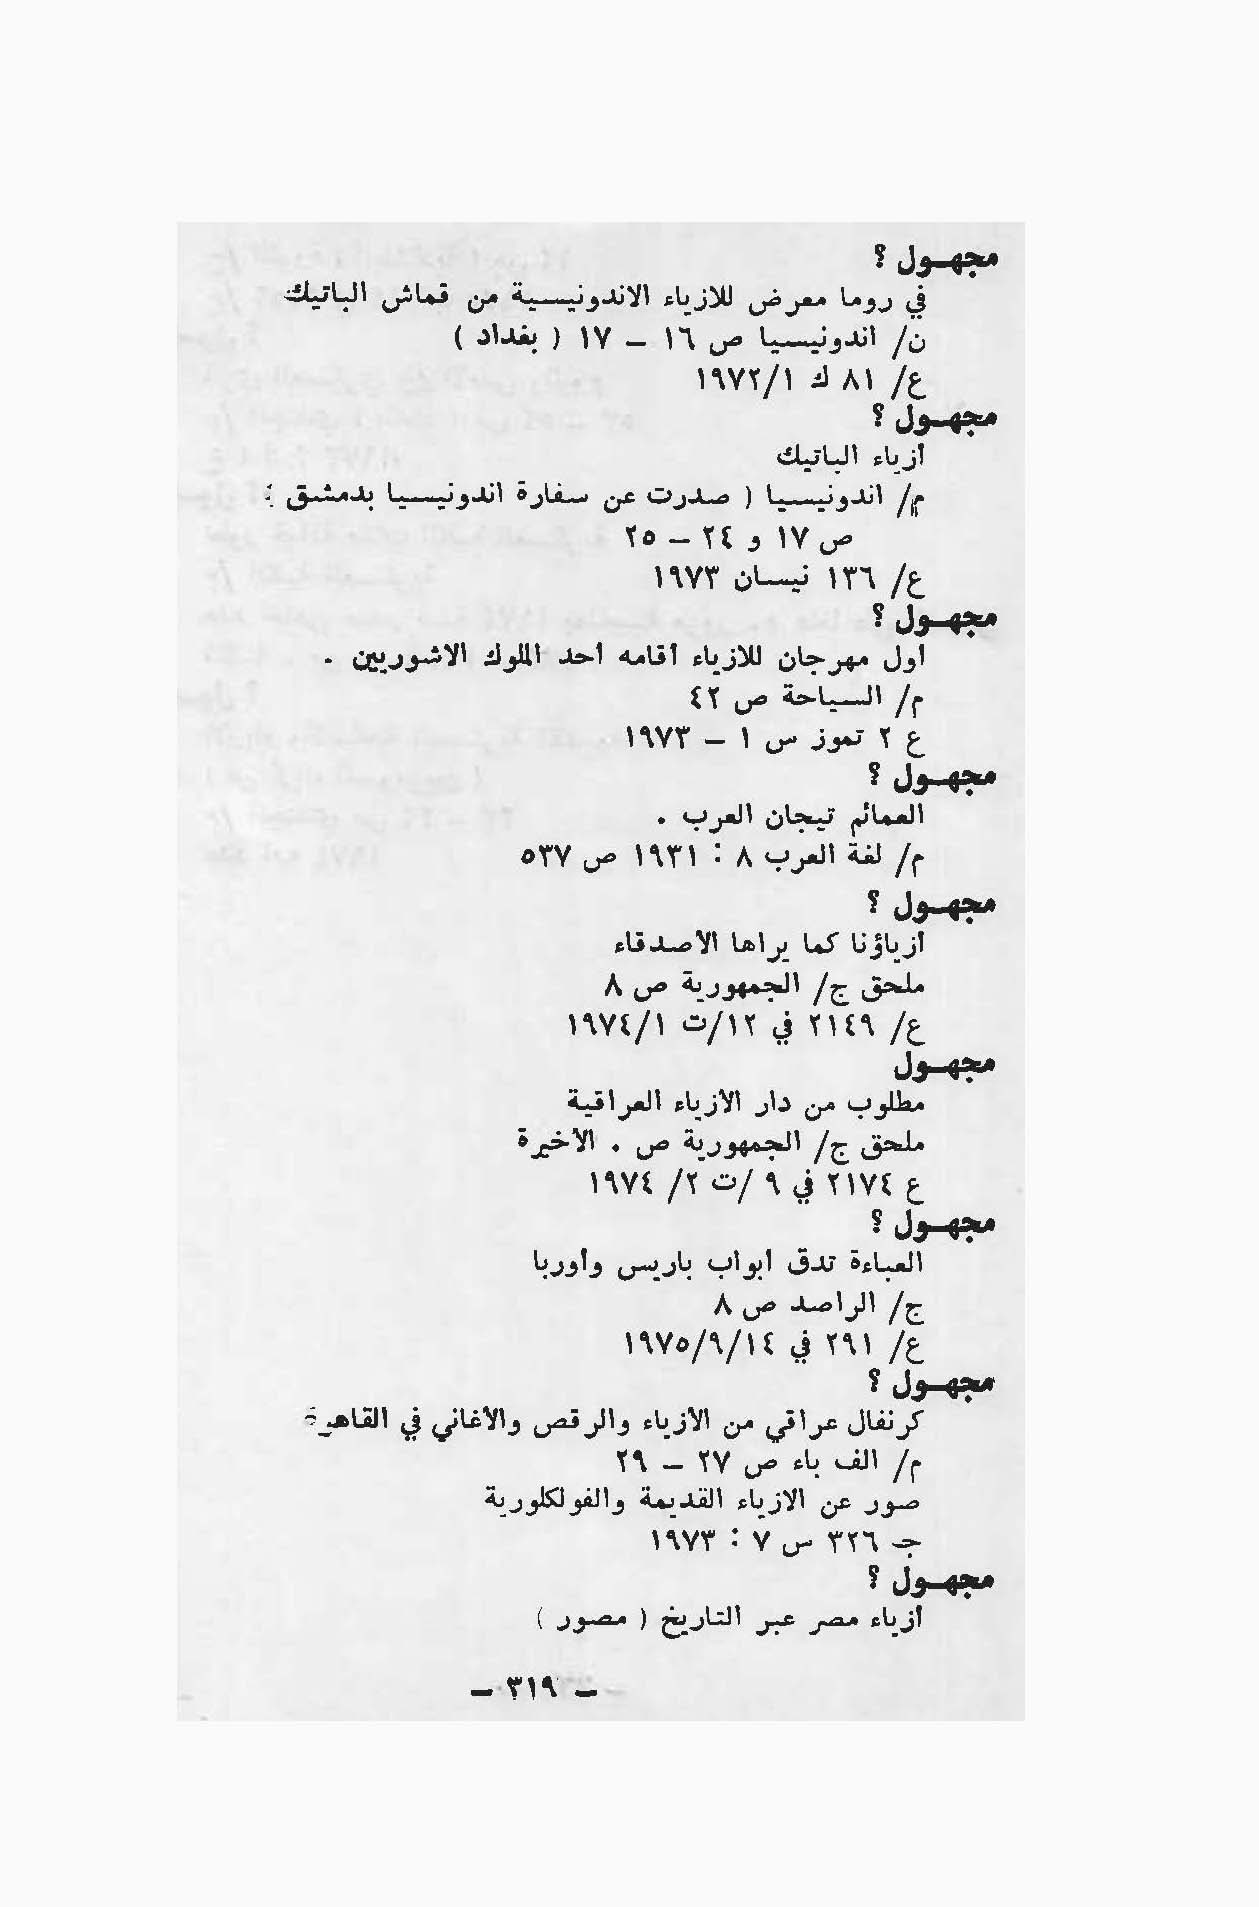 مجهـول ؟
في روما معرض للازياء الاندونيسية من قماش الباتيك
ن/ اندونيسيا ص ١٦ – ١٧ ( بغداد )
ع/ ٨١ ك ١٩٧٢/١
مجهـول ؟
أزياء الباتيك
م/ اندونيسيا ( صدرت عن سفارة اندونيسيا بدمشق )
ص ١٧ و ٢٤ – ٢٥
ع/ ١٣٦ نيسان ١٩٧٣
مجهـول ؟
أول مهرجان للازياء أقامه أحد الملوك الاشوريين .
م/ السياحة ص ٤٢
ع ٢ تموز س ١ – ١٩٧٣
مجهـول ؟
العمائم تيجان العرب .
م/ لغة العرب ٨ : ١٩٣١ ص ٥٣٧
مجهـول ؟
أزياؤنا كما يراها الأصدقاء
ملحق ج/ الجمهورية ص ٨
ع/ ٢١٤٩ في ١٢/ت ١٩٧٤/١
مجهـول
مطلوب من دار الأزياء العراقية
ملحق ج/ الجمهورية ص . الأخيرة
ع ٢١٧٤ في ٩ /ت ٢/ ١٩٧٤
مجهـول ؟
العباءة تدق أبواب باريس وأوربا
ج/ الراصد ص ٨
ع/ ٢٩١ في ١٩٧٥/٩/١٤
مجهـول ؟
كرنفال عراقي من الأزياء والرقص والأغاني في القاهرة
م/ الف باء ص ٢٧ – ٢٩
صور عن الازياء القديمة والفولكلورية
جـ ٣٢٦ س ٧ : ١٩٧٣
مجهـول ؟
أزياء مصر عبر التاريخ ( مصور )
– ٣١٩ –